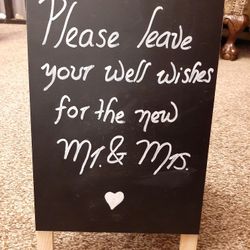 Please leave
your well wishes
for the new
Mr. & Mrs.